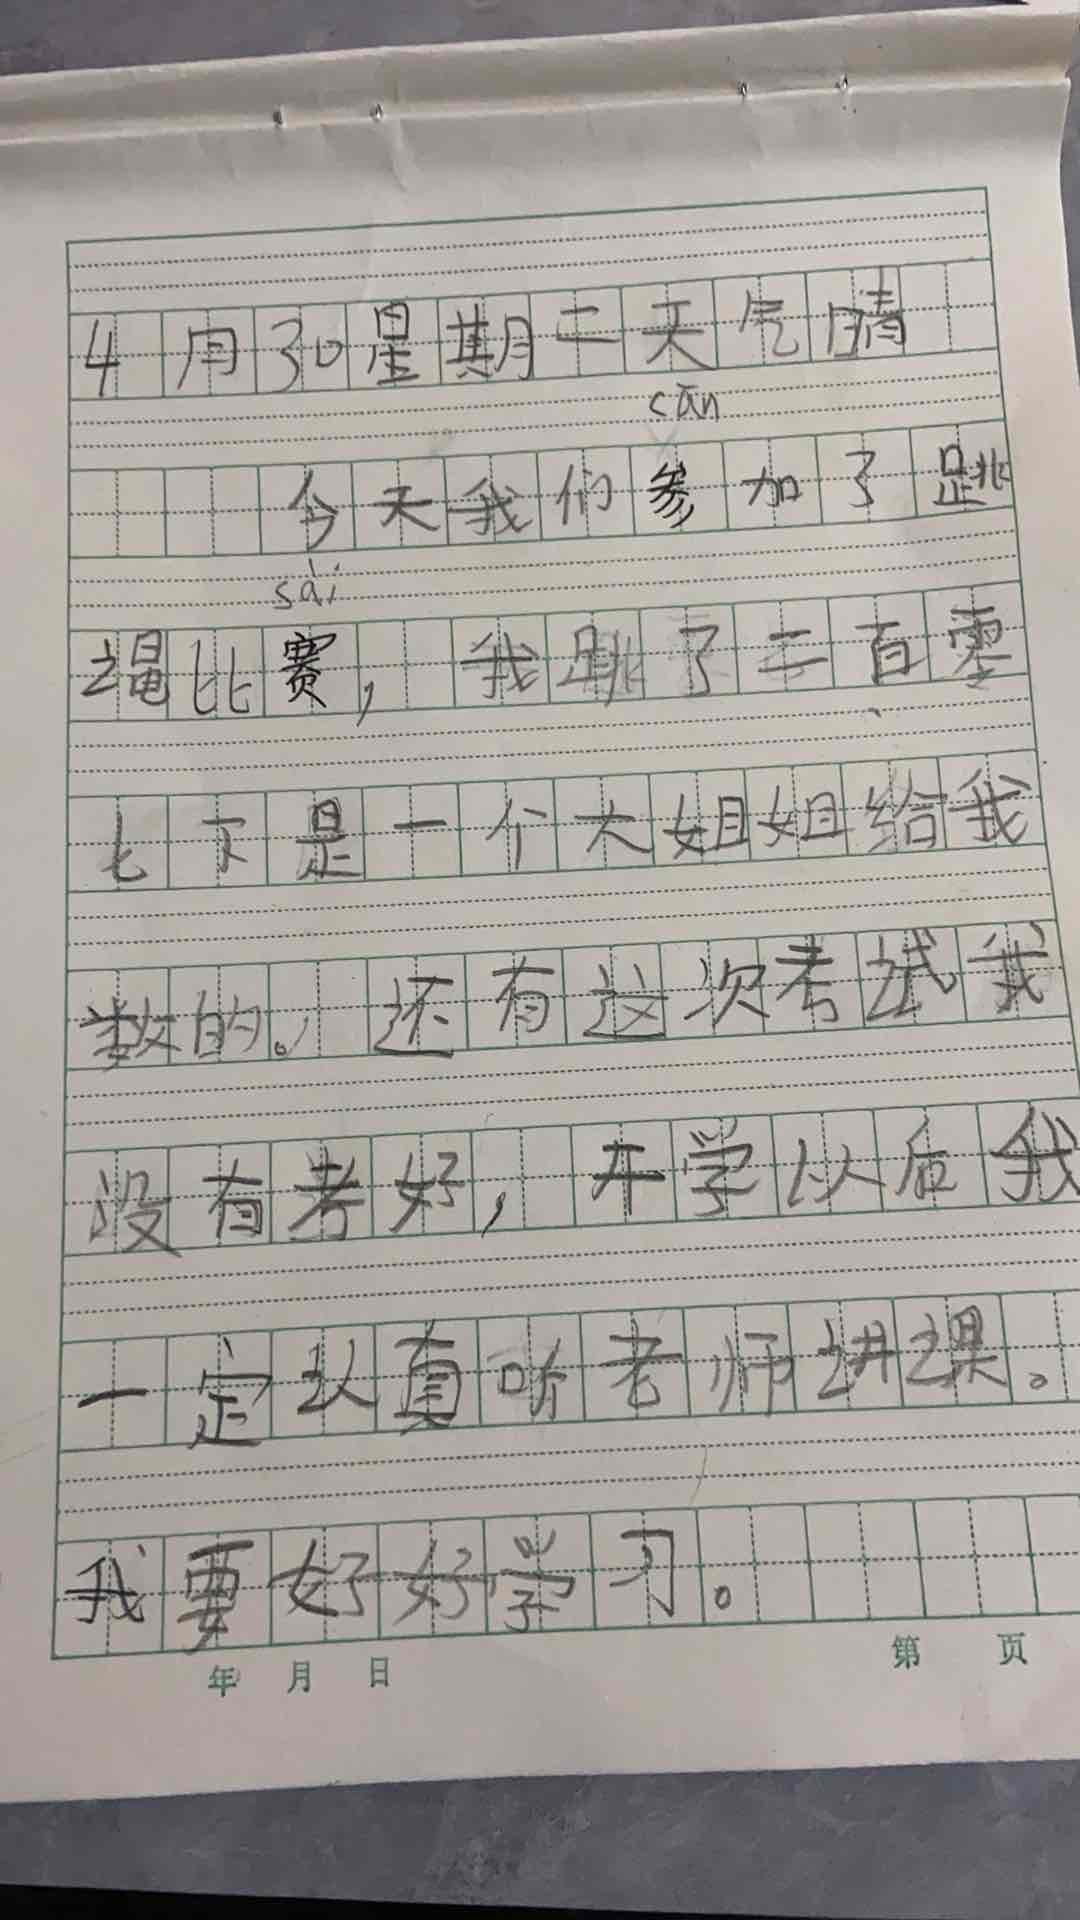 4月30星期二天气晴
cān
今天我们参加了跳
sài
绳比赛，我跳了二百零
七下是一个大姐姐给我
数的。还有这次考试我
没有考好，开学以后我
一定认真听老师讲课。
我要好好学习。
年 月 日 第 页